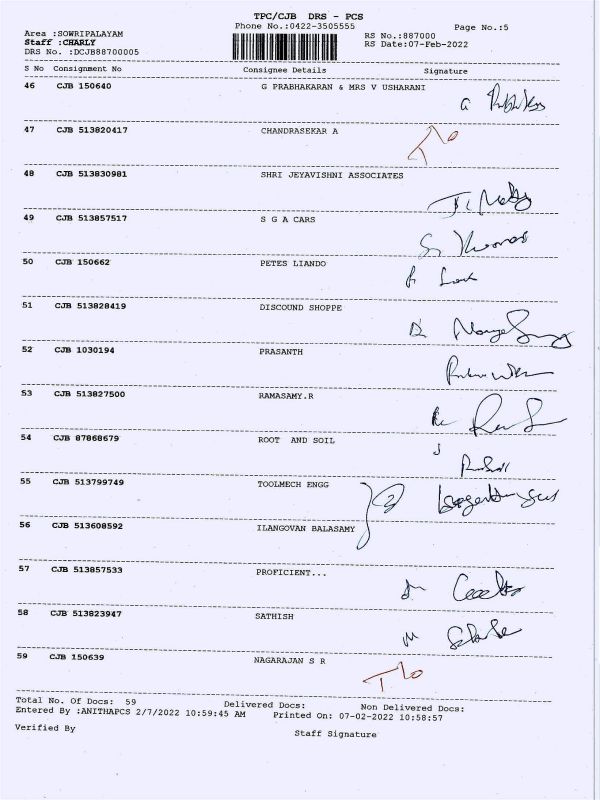 TPC/CJB DRS - PCS
Phone No.:0422-3505555
Page No.:5
Area :SOWRIPALAYAM
RS No.:887000
Staff :CHARLY
RS Date:07-Feb-2022
DRS No. :DCJB88700005
S No Consignment No Consignee Details Signature
46 CJB 150640 G PRABHAKARAN & MRS V USHARANI
47 CJB 513820417 CHANDRASEKAR A
48 CJB 513830981 SHRI JEYAVISHNI ASSOCIATES
49 CJB 513857517 S G A CARS
50 CJB 150662 PETES LIANDO
51 CJB 513828419 DISCOUND SHOPPE
52 CJB 1030194 PRASANTH
53 CJB 513827500 RAMASAMY.R
54 CJB 87868679 ROOT AND SOIL
55 CJB 513799749 TOOLMECH ENGG
56 CJB 513608592 ILANGOVAN BALASAMY
57 CJB 513857533 PROFICIENT...
58 CJB 513823947 SATHISH
59 CJB 150639 NAGARAJAN S R
Total No. Of Docs: 59 Delivered Docs: Non Delivered Docs:
Entered By :ANITHAPCS 2/7/2022 10:59:45 AM Printed On: 07-02-2022 10:58:57
Verified By Staff Signature